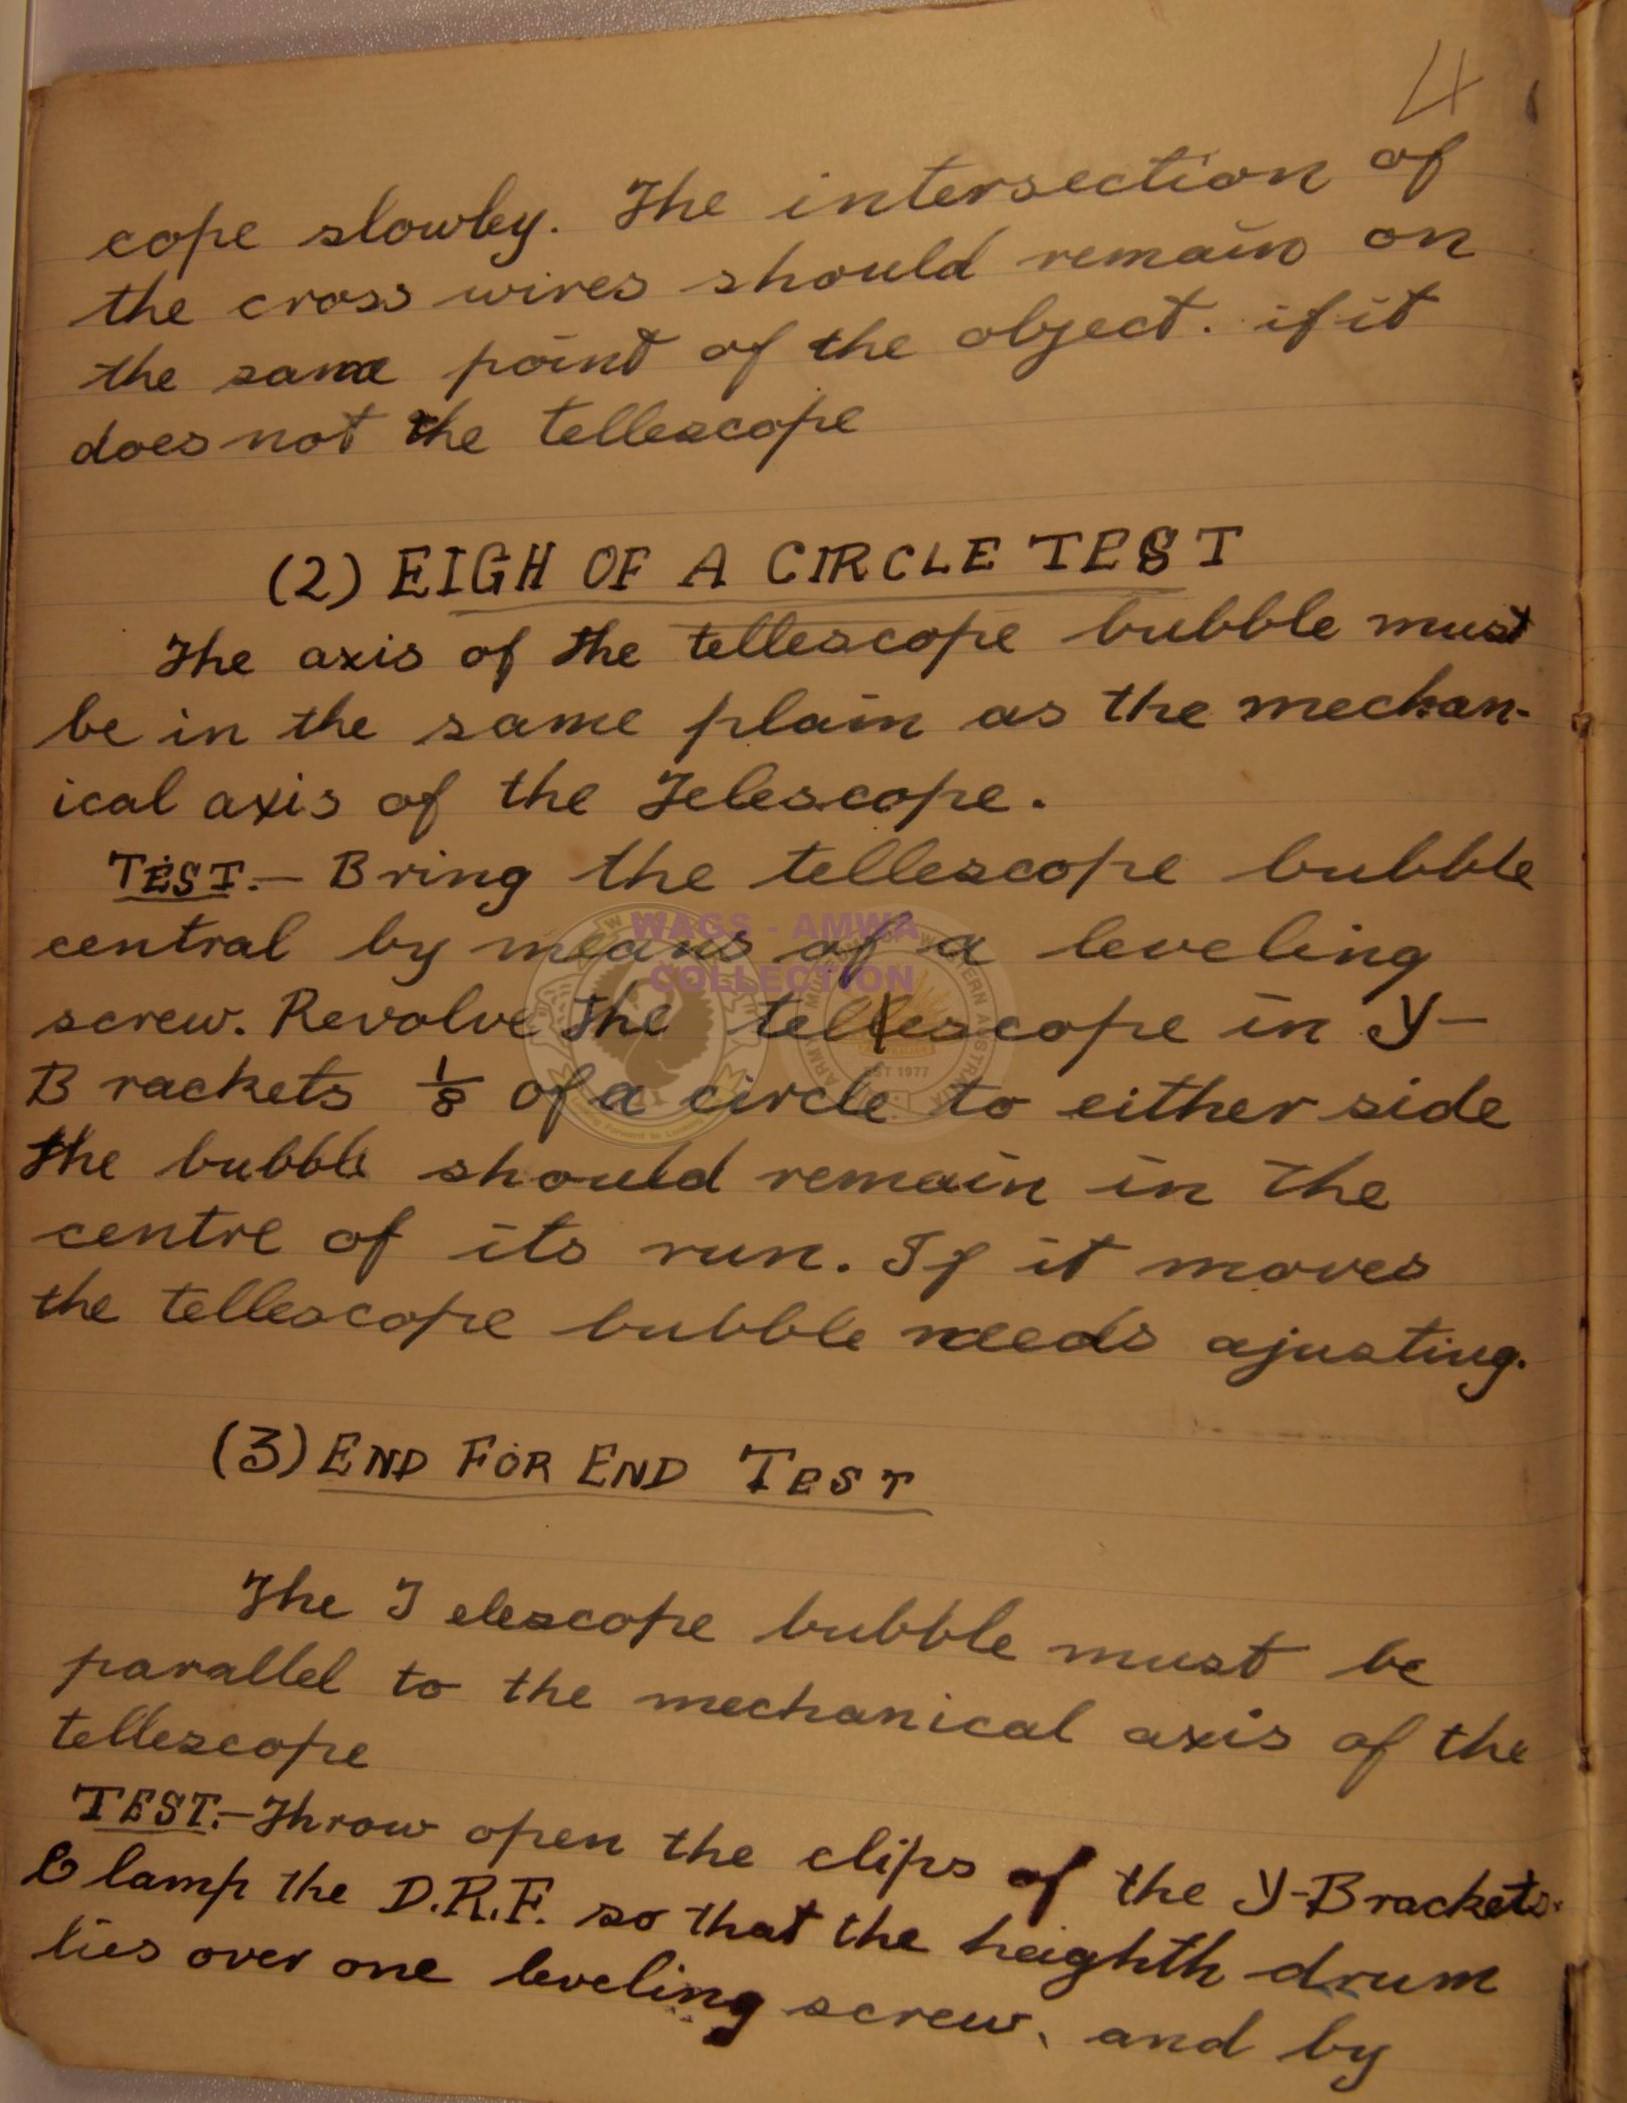 4
cope slowley. The intersection of
the cross wires should remain on
the same point of the object. if it
does not the tellescope
(2) EIGH OF A CIRCLE TEST
The axis of the tellescope bubble must
be in the same plain as the mechan-
ical axis of the Telescope.
TEST.- Bring the tellescope bubble
central by means of a leveling
screw. Revolve the tellescope in Y-
Brackets 1/8 of a circle to either side
the bubble should remain in the
centre of its run. If it moves
the tellescope bubble needs ajusting.
(3) END FOR END TEST
The Telescope bubble must be
parallel to the mechanical axis of the
tellescope
TEST.- Throw open the clips of the Y-Brackets.
Clamp the D.R.F. so that the heighth drum
lies over one leveling screw, and by
WAGS - AMWA
COLLECTION
EST 1977